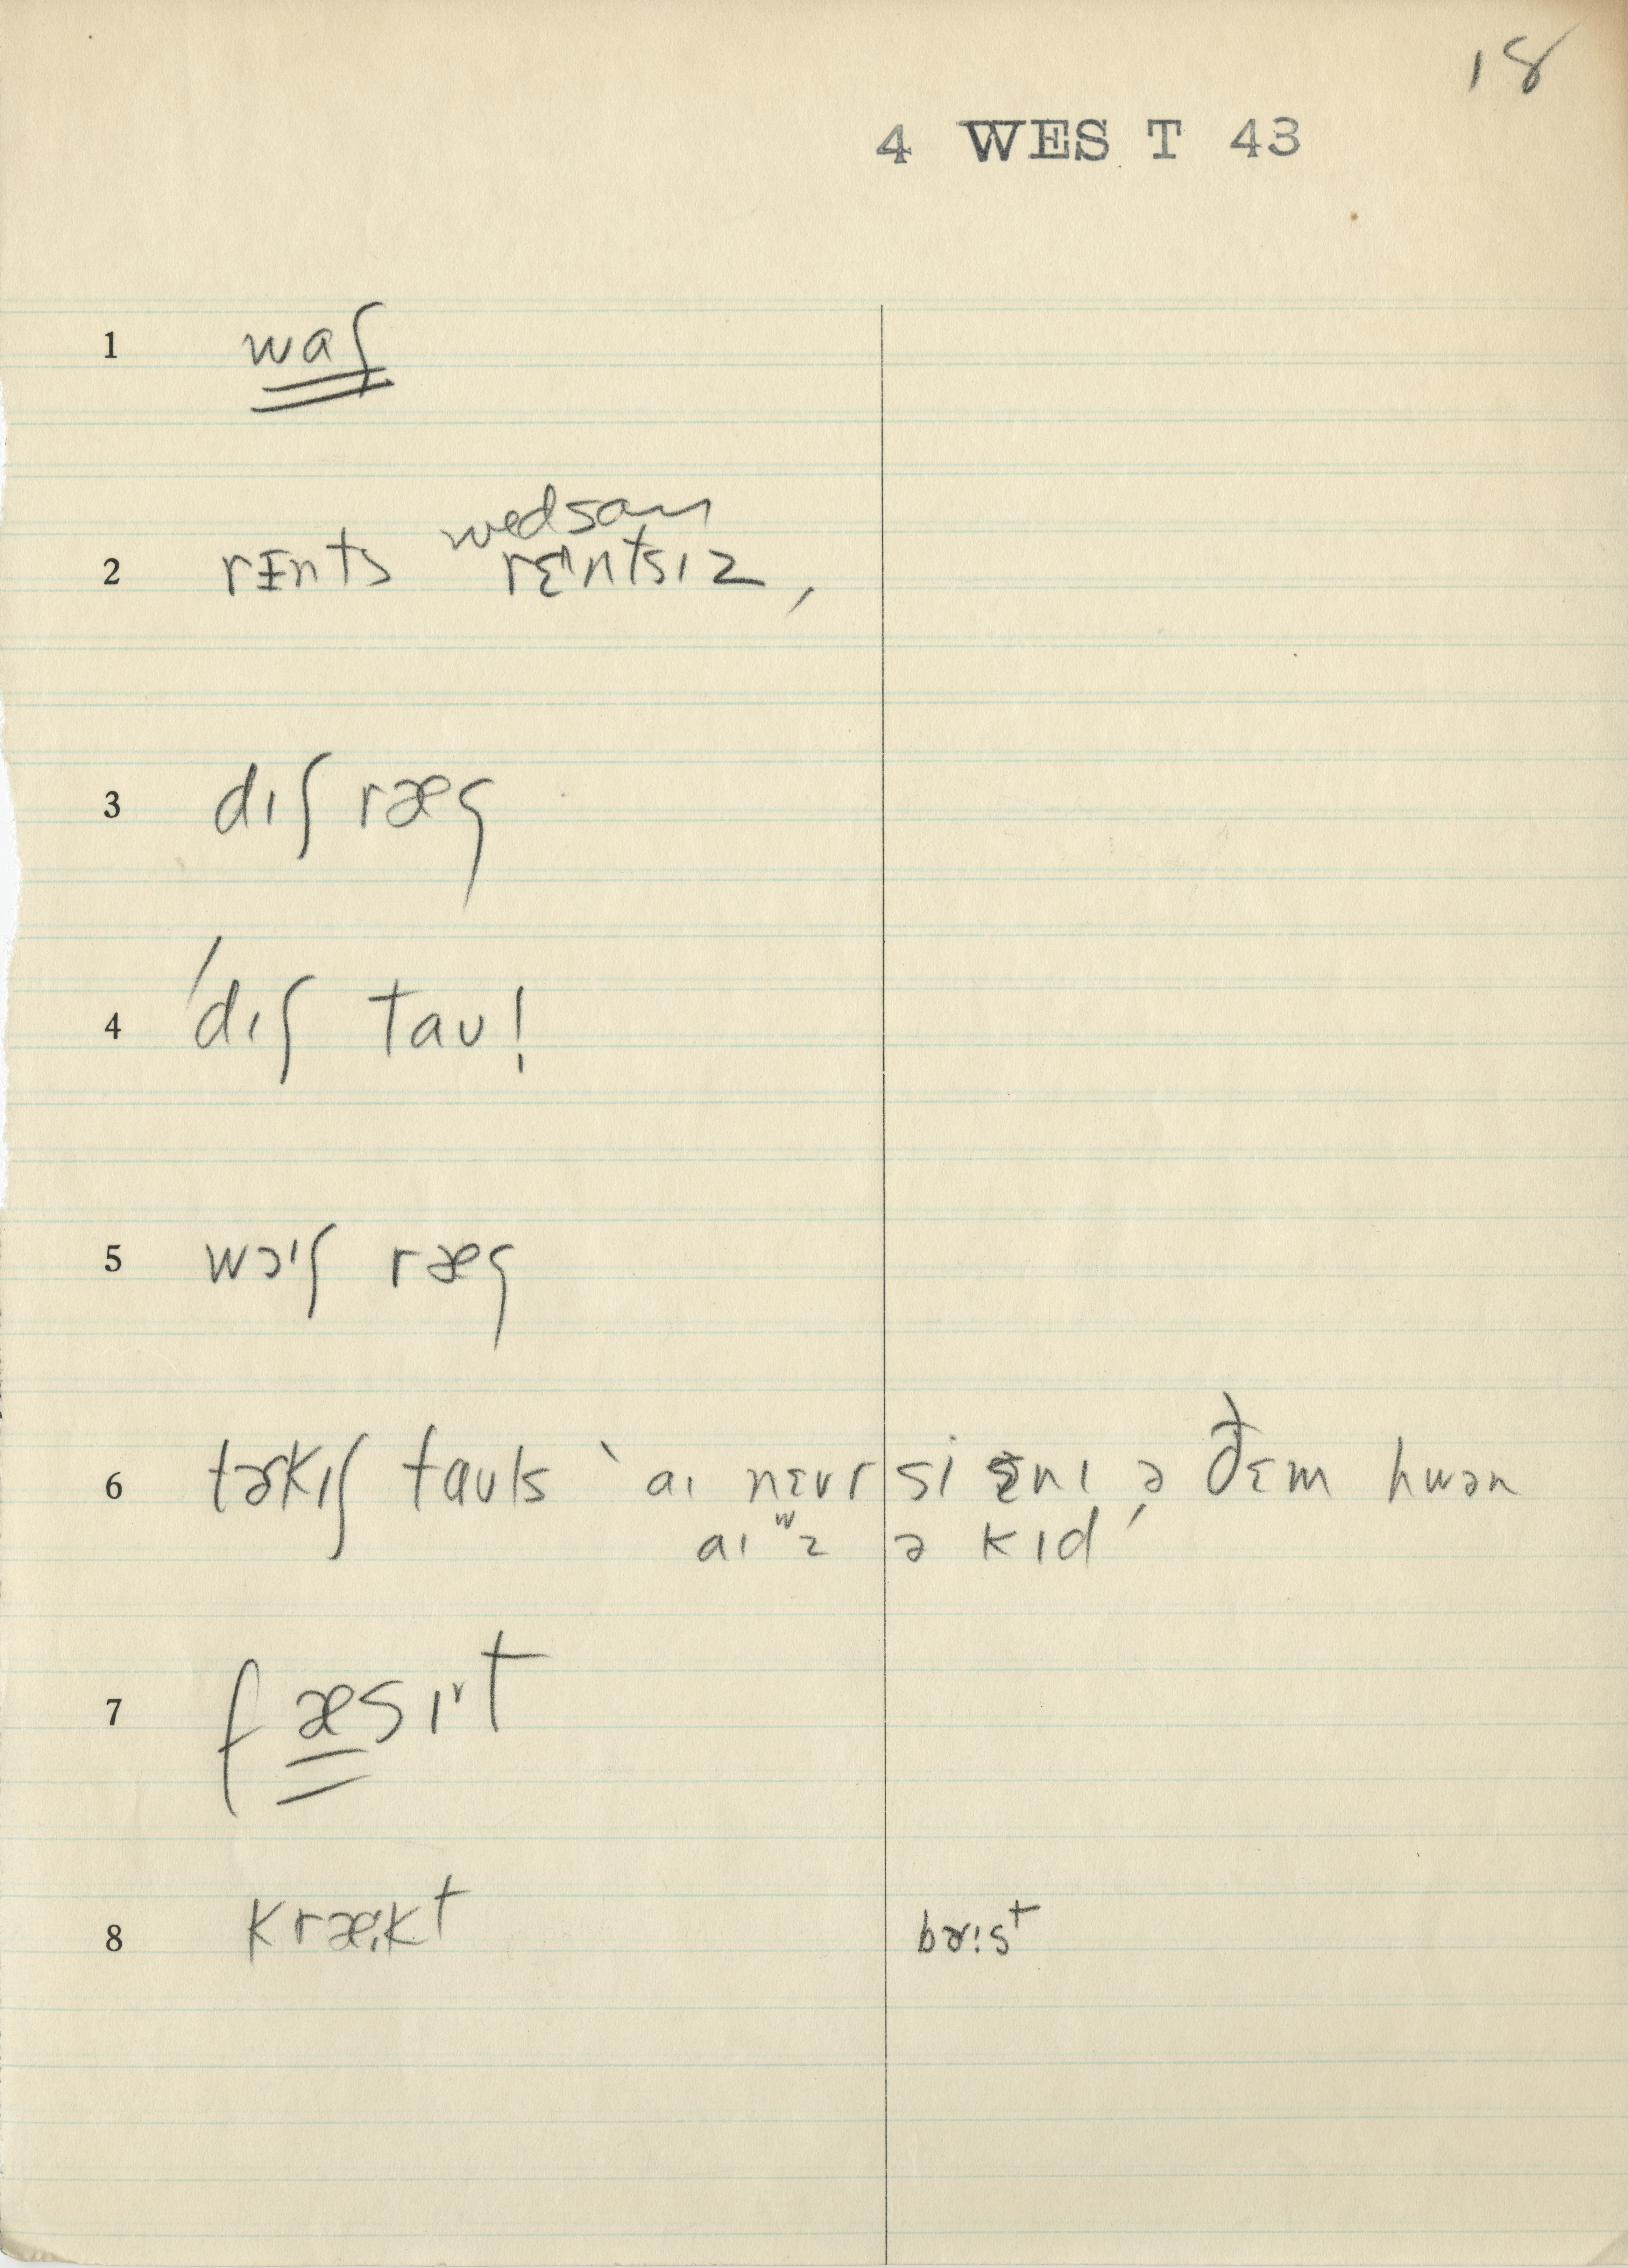 18
4 WES T 43
1 waʃ
2 rɪnts wɛdsam rɛntsɪz,
3 dɪʃ ræg
4 'dɪʃ taʊ!
5 wɔɪʃ ræg
6 tɚkɪʃ taʊls ˋaɪ nɛvr si ɛnɪ ə ðɛm hwən
aɪ wz ə kɪd ˊ
7 fæsɪrt
8 kræɪkt bɚɪst